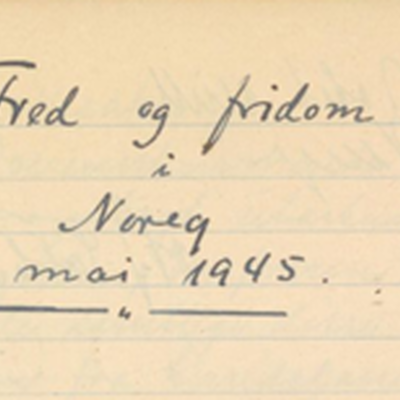 Fred og fridom
i
Noreg
mai 1945.
"